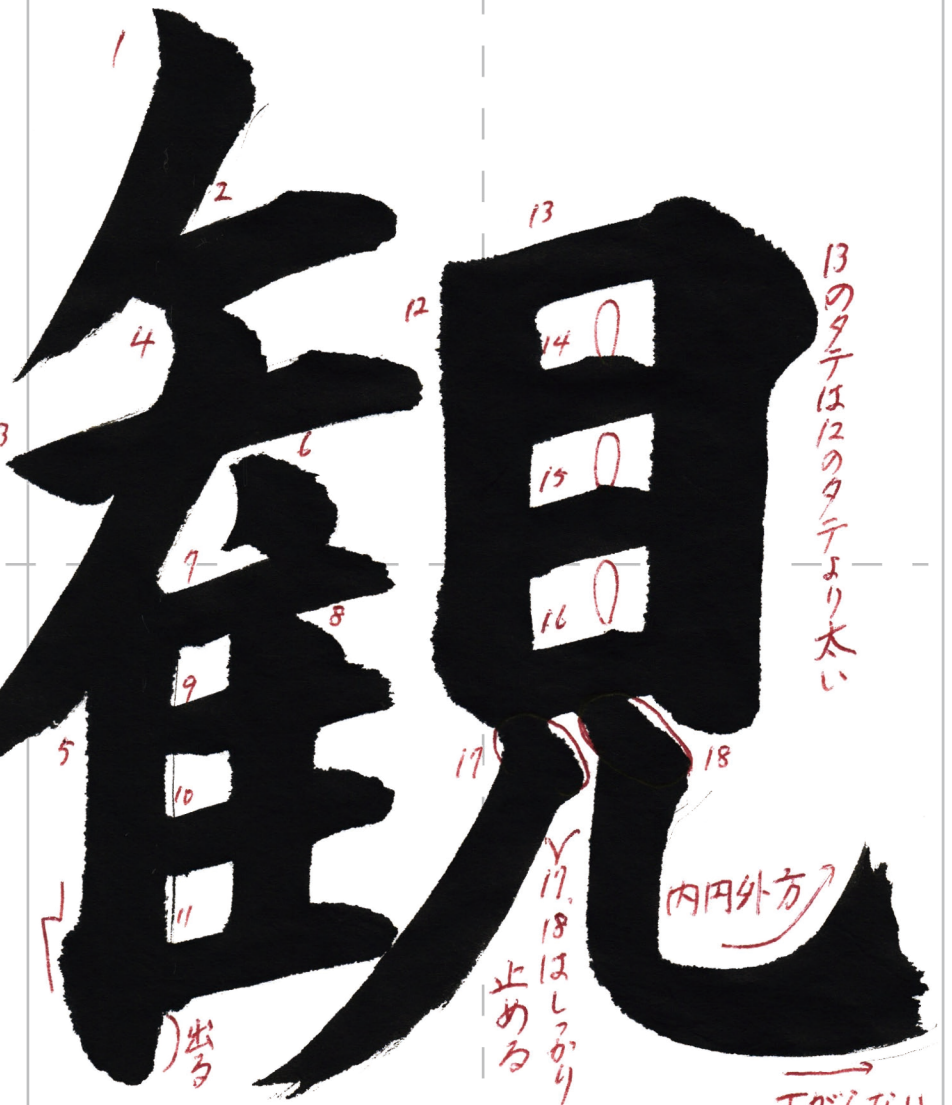 観
1
2
3
4
5
6
7
8
9
10
11
12
13
14
15
16
17
18
13のタテは12のタテより太い
17、18はしっかり
止める
内円外方
出る